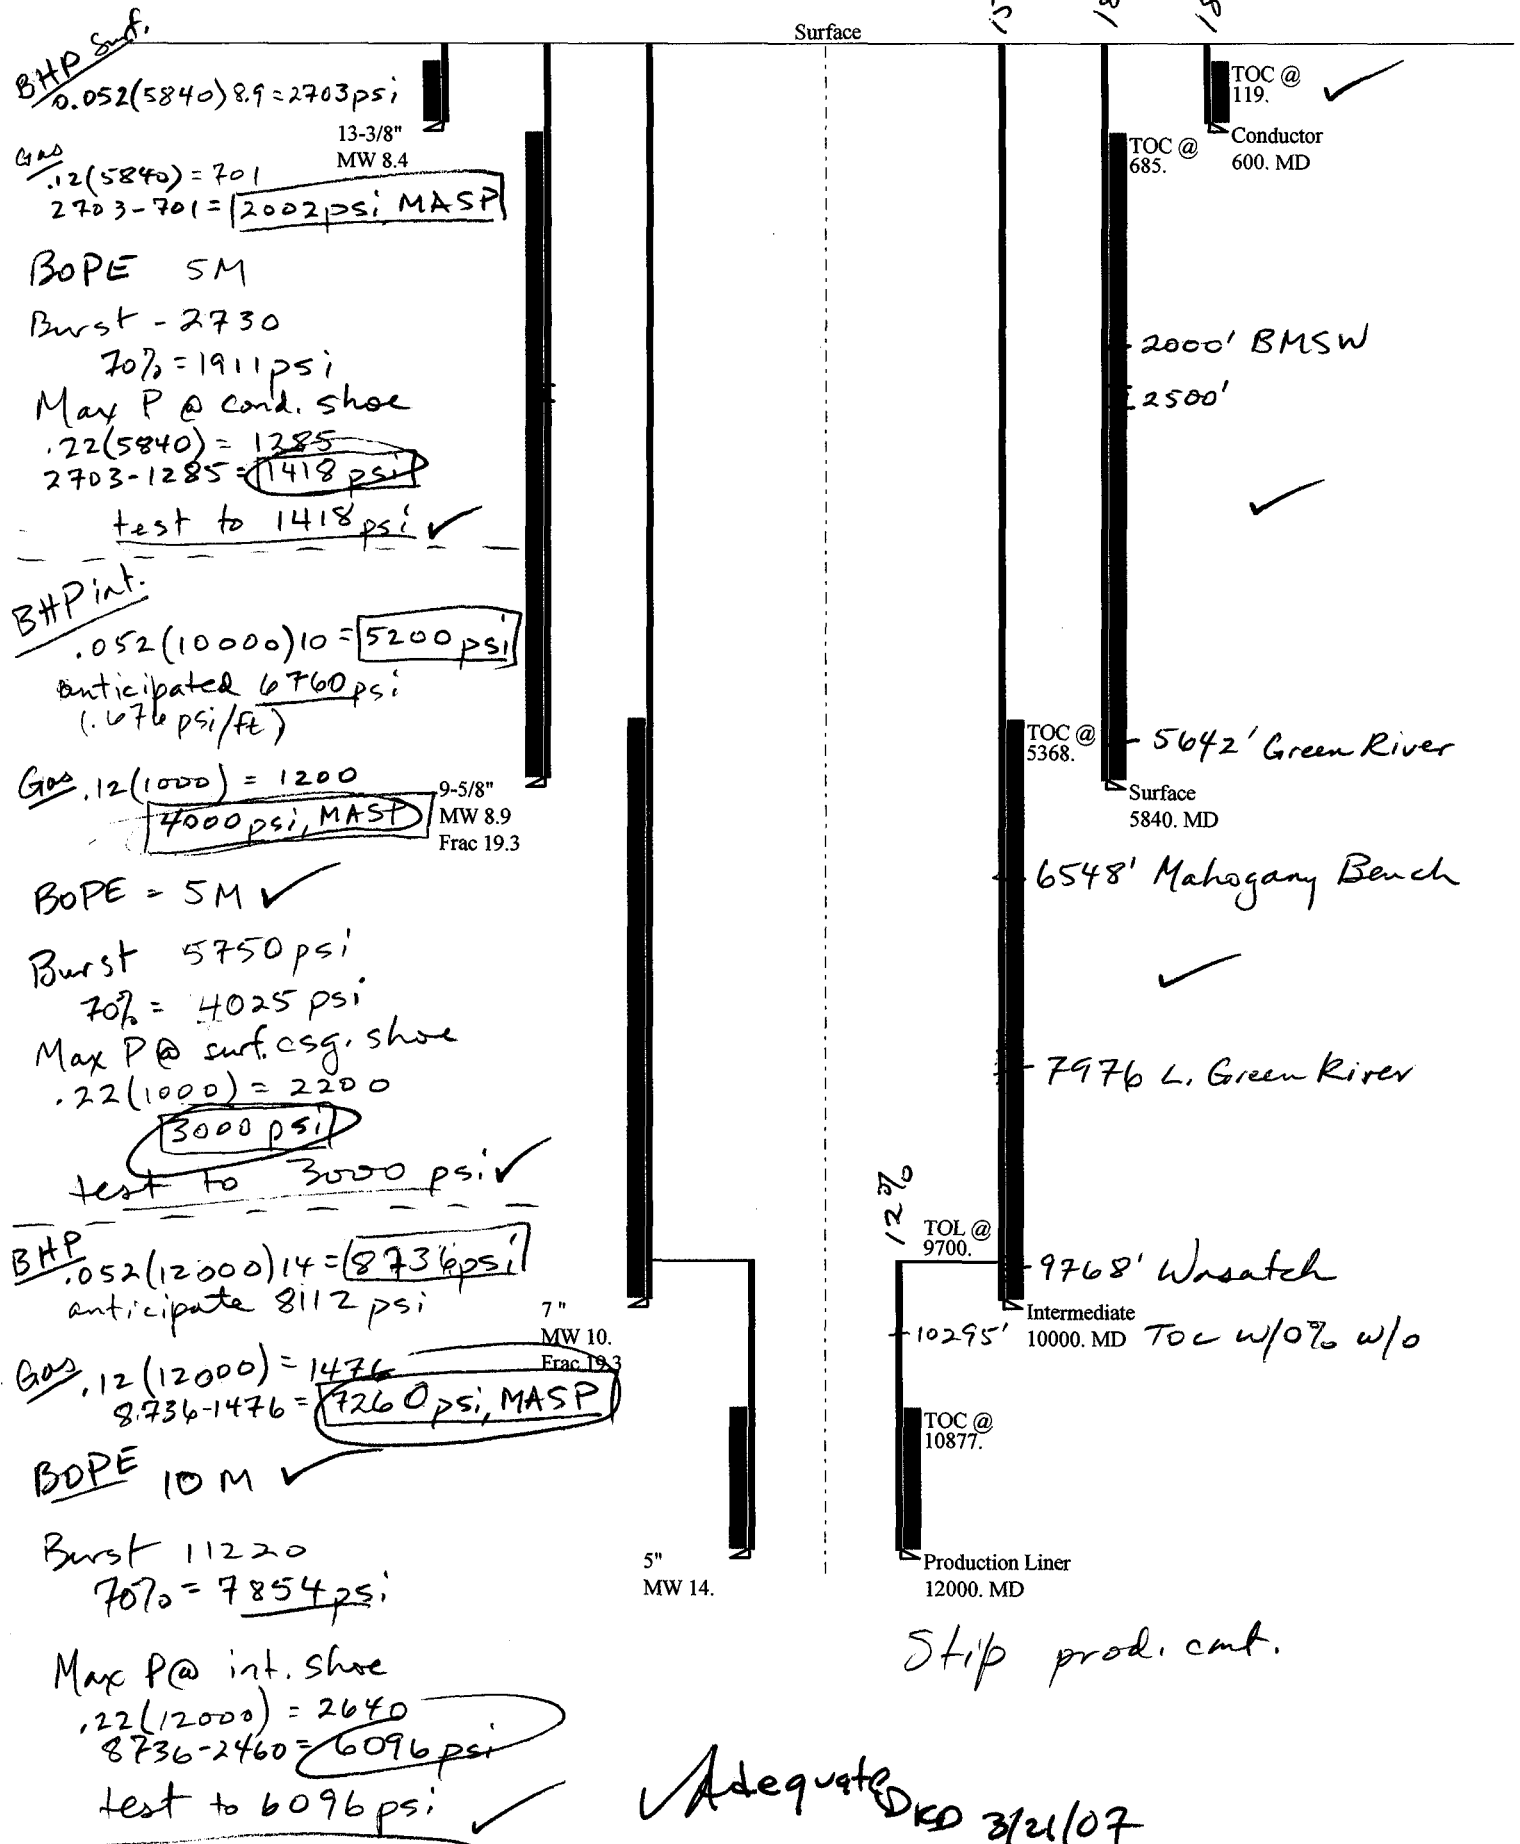 Surface
BHP Surf.
0.052(5840)8.9=2703psi
Gas
.12(5840)=701
2703-701=2002psi MASP
BOPE 5M
Burst - 2730
70%=1911psi
Max P @ cond. shoe
.22(5840)=1285
2703-1285=1418 psi
test to 1418psi ✓
BHP int.
.052(10000)10=5200 psi
anticipated 6760psi
(.676 psi/ft)
Gas .12(1000) = 1200
4000psi, MASP
BOPE = 5M ✓
Burst 5750psi
70%= 4025 psi
Max P @ surf. csg. shoe
.22(1000) = 2200
3000 psi
test to 3000 psi ✓
BHP
.052(12000)14=8736psi
anticipate 8112 psi
Gas .12(12000) = 1476
8.736-1476=7260psi, MASP
BOPE 10M ✓
Burst 11220
70%=7854psi
Max P@ int. shoe
.22(12000)=2640
8736-2460=6096psi
test to 6096psi ✓
13-3/8"
MW 8.4
9-5/8"
MW 8.9
Frac 19.3
7"
MW 10.
Frac 19.3
5"
MW 14.
15
18
18
TOC @
119.
✓
Conductor
600. MD
TOC @
685.
2000' BMSW
2500'
✓
TOC @
5368.
5642' Green River
Surface
5840. MD
6548' Mahogany Bench
✓
7976 L. Green River
12%
TOL @
9700.
9768' Wasatch
Intermediate
10000. MD
10295' TOC w/0% w/o
TOC @
10877.
Production Liner
12000. MD
Stip prod. cmt.
✓Adequate DKD 3/21/07